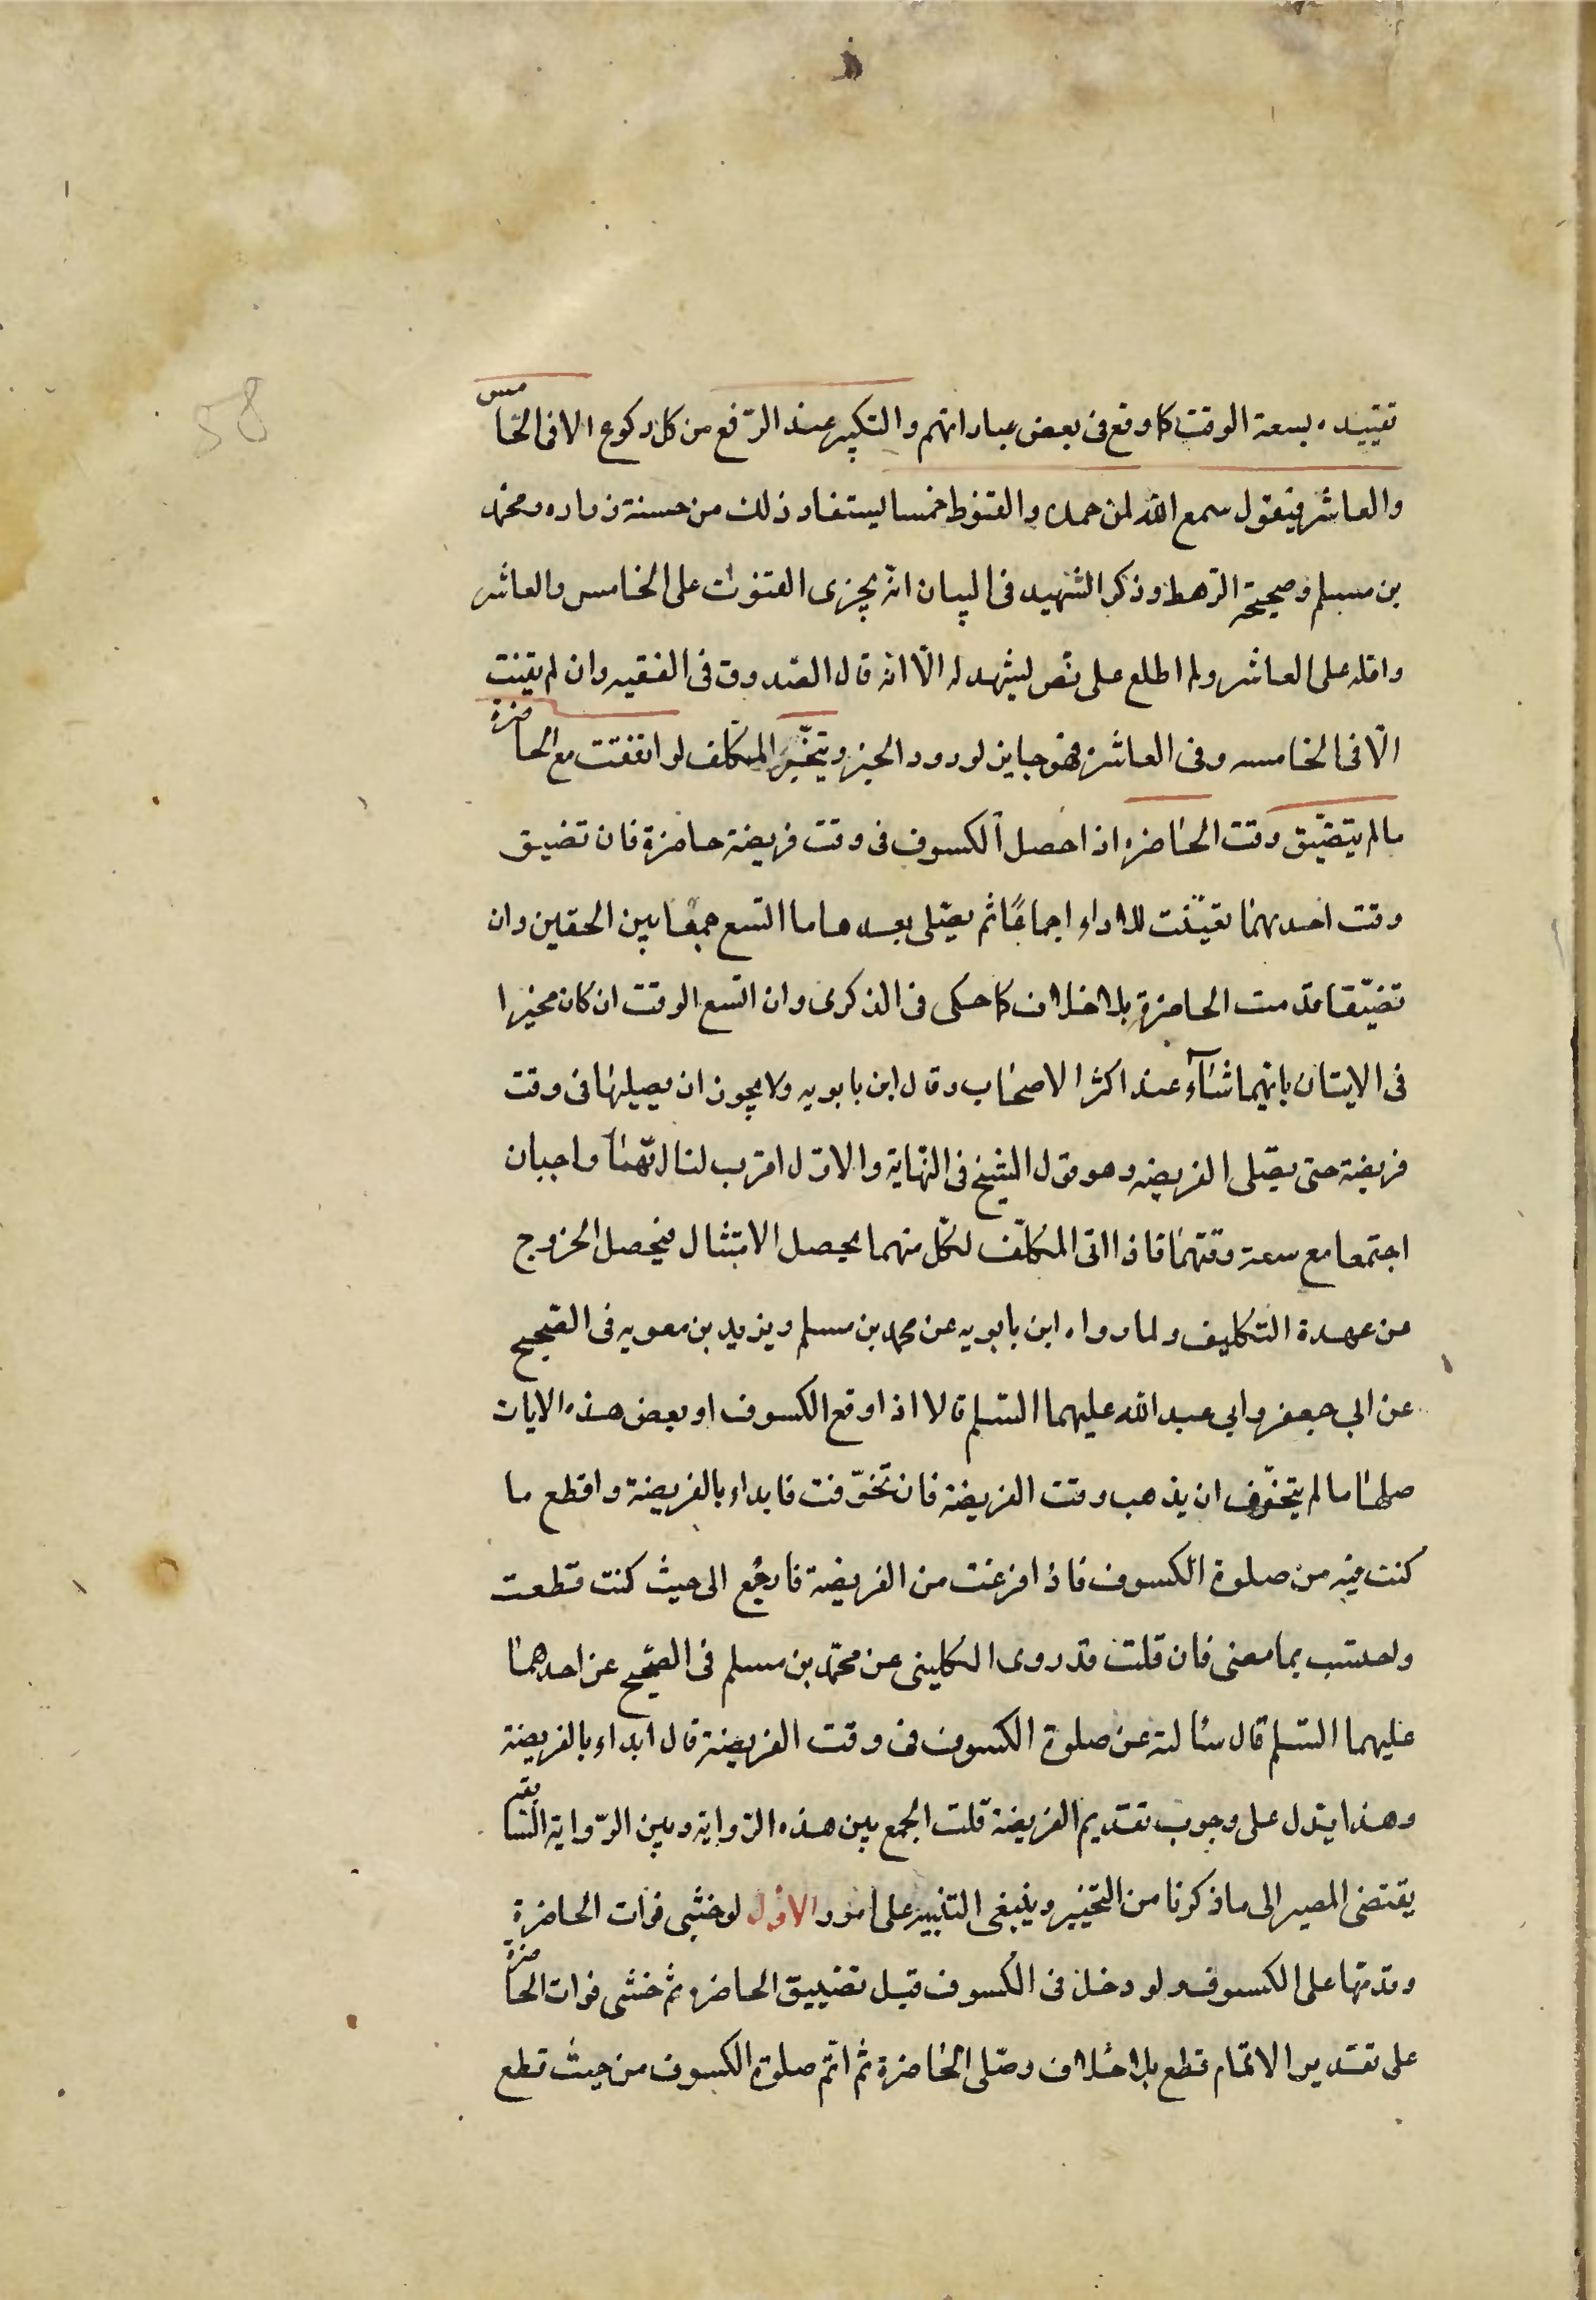 58
تقييده بسعة الوقت كما وقع فى بعض عباراتهم والتكبير عند الرّفع من كل ركوع الا فى الخامس
والعاشر فيقول سمع الله لمن حمده والقنوط خمسا يستفاد ذلك من حسنة زراره ومحمد
بن مسلم وصحيحة الرّهط وذكر الشهيد فى البيان انّه يجزى القنوت على الخامس والعاشر
واقله على العاشر ولم اطلع على نصّ يشهد له الّا انه قال الصّدوق فى الفقيه وان لم يقنت
الّا فى الخامسه وفى العاشرة فهو جايز لورود الخبر ويتخيّر المكلّف لو اتفقت مع الحاضرة
مالم يتضيّق وقت الحاضره اذا حصل الكسوف فى وقت فريضة حاضرة فان تضيق
وقت احديهما تعيّنت للاداء اجماعًا ثم يصّلى بعدها ما اتسع جمعا بين الحقين وان
تضيّقا قدّمت الحاضرة بلا خلاف كما حكى فى الذكرى وان اتسع الوقت ان كان مخيرا
فى الايتان بايّهما شاء عند اكثر الاصحاب وقال ابن بابويه ولا يجوز ان يصيلها فى وقت
فريضة حتى يصّلى الفريضه وهو قول الشيخ فى النّهاية والاوّل اقرب لنا انّهما واجبان
اجتمعا مع سعة وقتهما فاذا اتى المكلّف لكلّ منهما يحصل الامتثال فيحصل الخروج
من عهدة التكليف ولما رواه ابن بابويه عن محمد بن مسلم ويزيد بن معويه فى الصّحيح
عن ابي جعفر وابي عبد الله عليهما السّلم قالا اذا وقع الكسوف او بعض هذه الايات
صلها مالم يتخوّف ان يذهب وقت الفريضة فان تخوّفت فابداء بالفريضة واقطع ما
كنت فيه من صلوة الكسوف فاذا فرغت من الفريضة فارجع الى حيث كنت قطعت
واحتسب بما معنى فان قلت قد روى الكلينى عن محمّد بن مسلم فى الصّحيح عن احدهما
عليهما السّلم قال سئالته عن صلوة الكسوف فى وقت الفريضة قال ابداء بالفريضة
وهذا يدل على وجوب تقديم الفريضة قلت الجمع بين هذه الرّواية وبين الرّواية السّابقه
يقتضى المصير الى ما ذكرنا من التخيير وينبغى التنبيه على امور الاوّل لو خشى فوات الحاضرة
وقدمتها على الكسوف ولو دخل فى الكسوف قبل تضييق الحاضره ثم خشى فوات الحاضرة
على تقدير الاتمام قطع بلا خلاف وصّلى الحاضرة ثم اتمّ صلوة الكسوف من حيث قطع